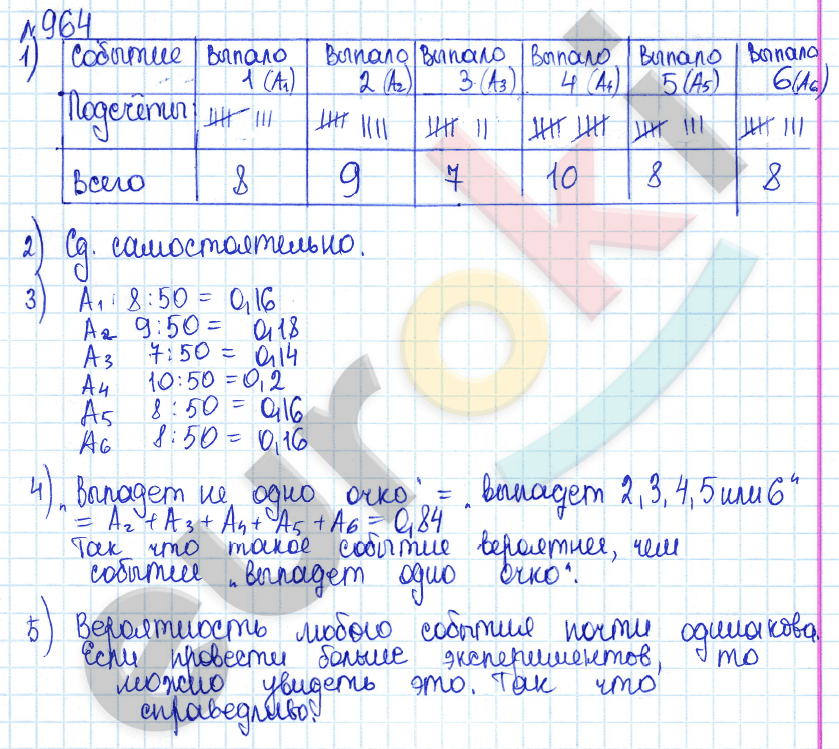 №964
1) Событие Выпало 1 (A₁) Выпало 2 (A₂) Выпало 3 (A₃) Выпало 4 (A₄) Выпало 5 (A₅) Выпало 6 (A₆)
Подсчёты
Всего 8 9 7 10 8 8
2) Сд. самостоятельно.
3) A₁: 8:50 = 0,16
A₂ 9:50 = 0,18
A₃ 7:50 = 0,14
A₄ 10:50 = 0,2
A₅ 8:50 = 0,16
A₆ 8:50 = 0,16
4) „Выпадет не одно очко“ = „выпадет 2,3,4,5 или 6“
= A₂ + A₃ + A₄ + A₅ + A₆ = 0,84
Так что такое событие вероятнее, чем
событие „выпадет одно очко“.
5) Вероятность любого события почти одинакова.
Если провести больше экспериментов, то
можно увидеть это. Так что
справедливо.
euroki